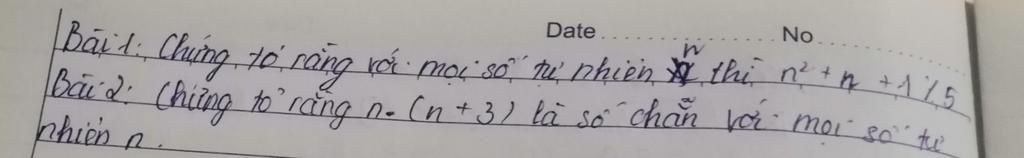 Date........................No.....................
Bài 1: Chứng tỏ rằng với mọi số tự nhiên n thì n² + n + 1 ⋮̸ 5
Bài 2: Chứng tỏ rằng n. (n + 3) là số chẵn với mọi số tự
nhiên n.